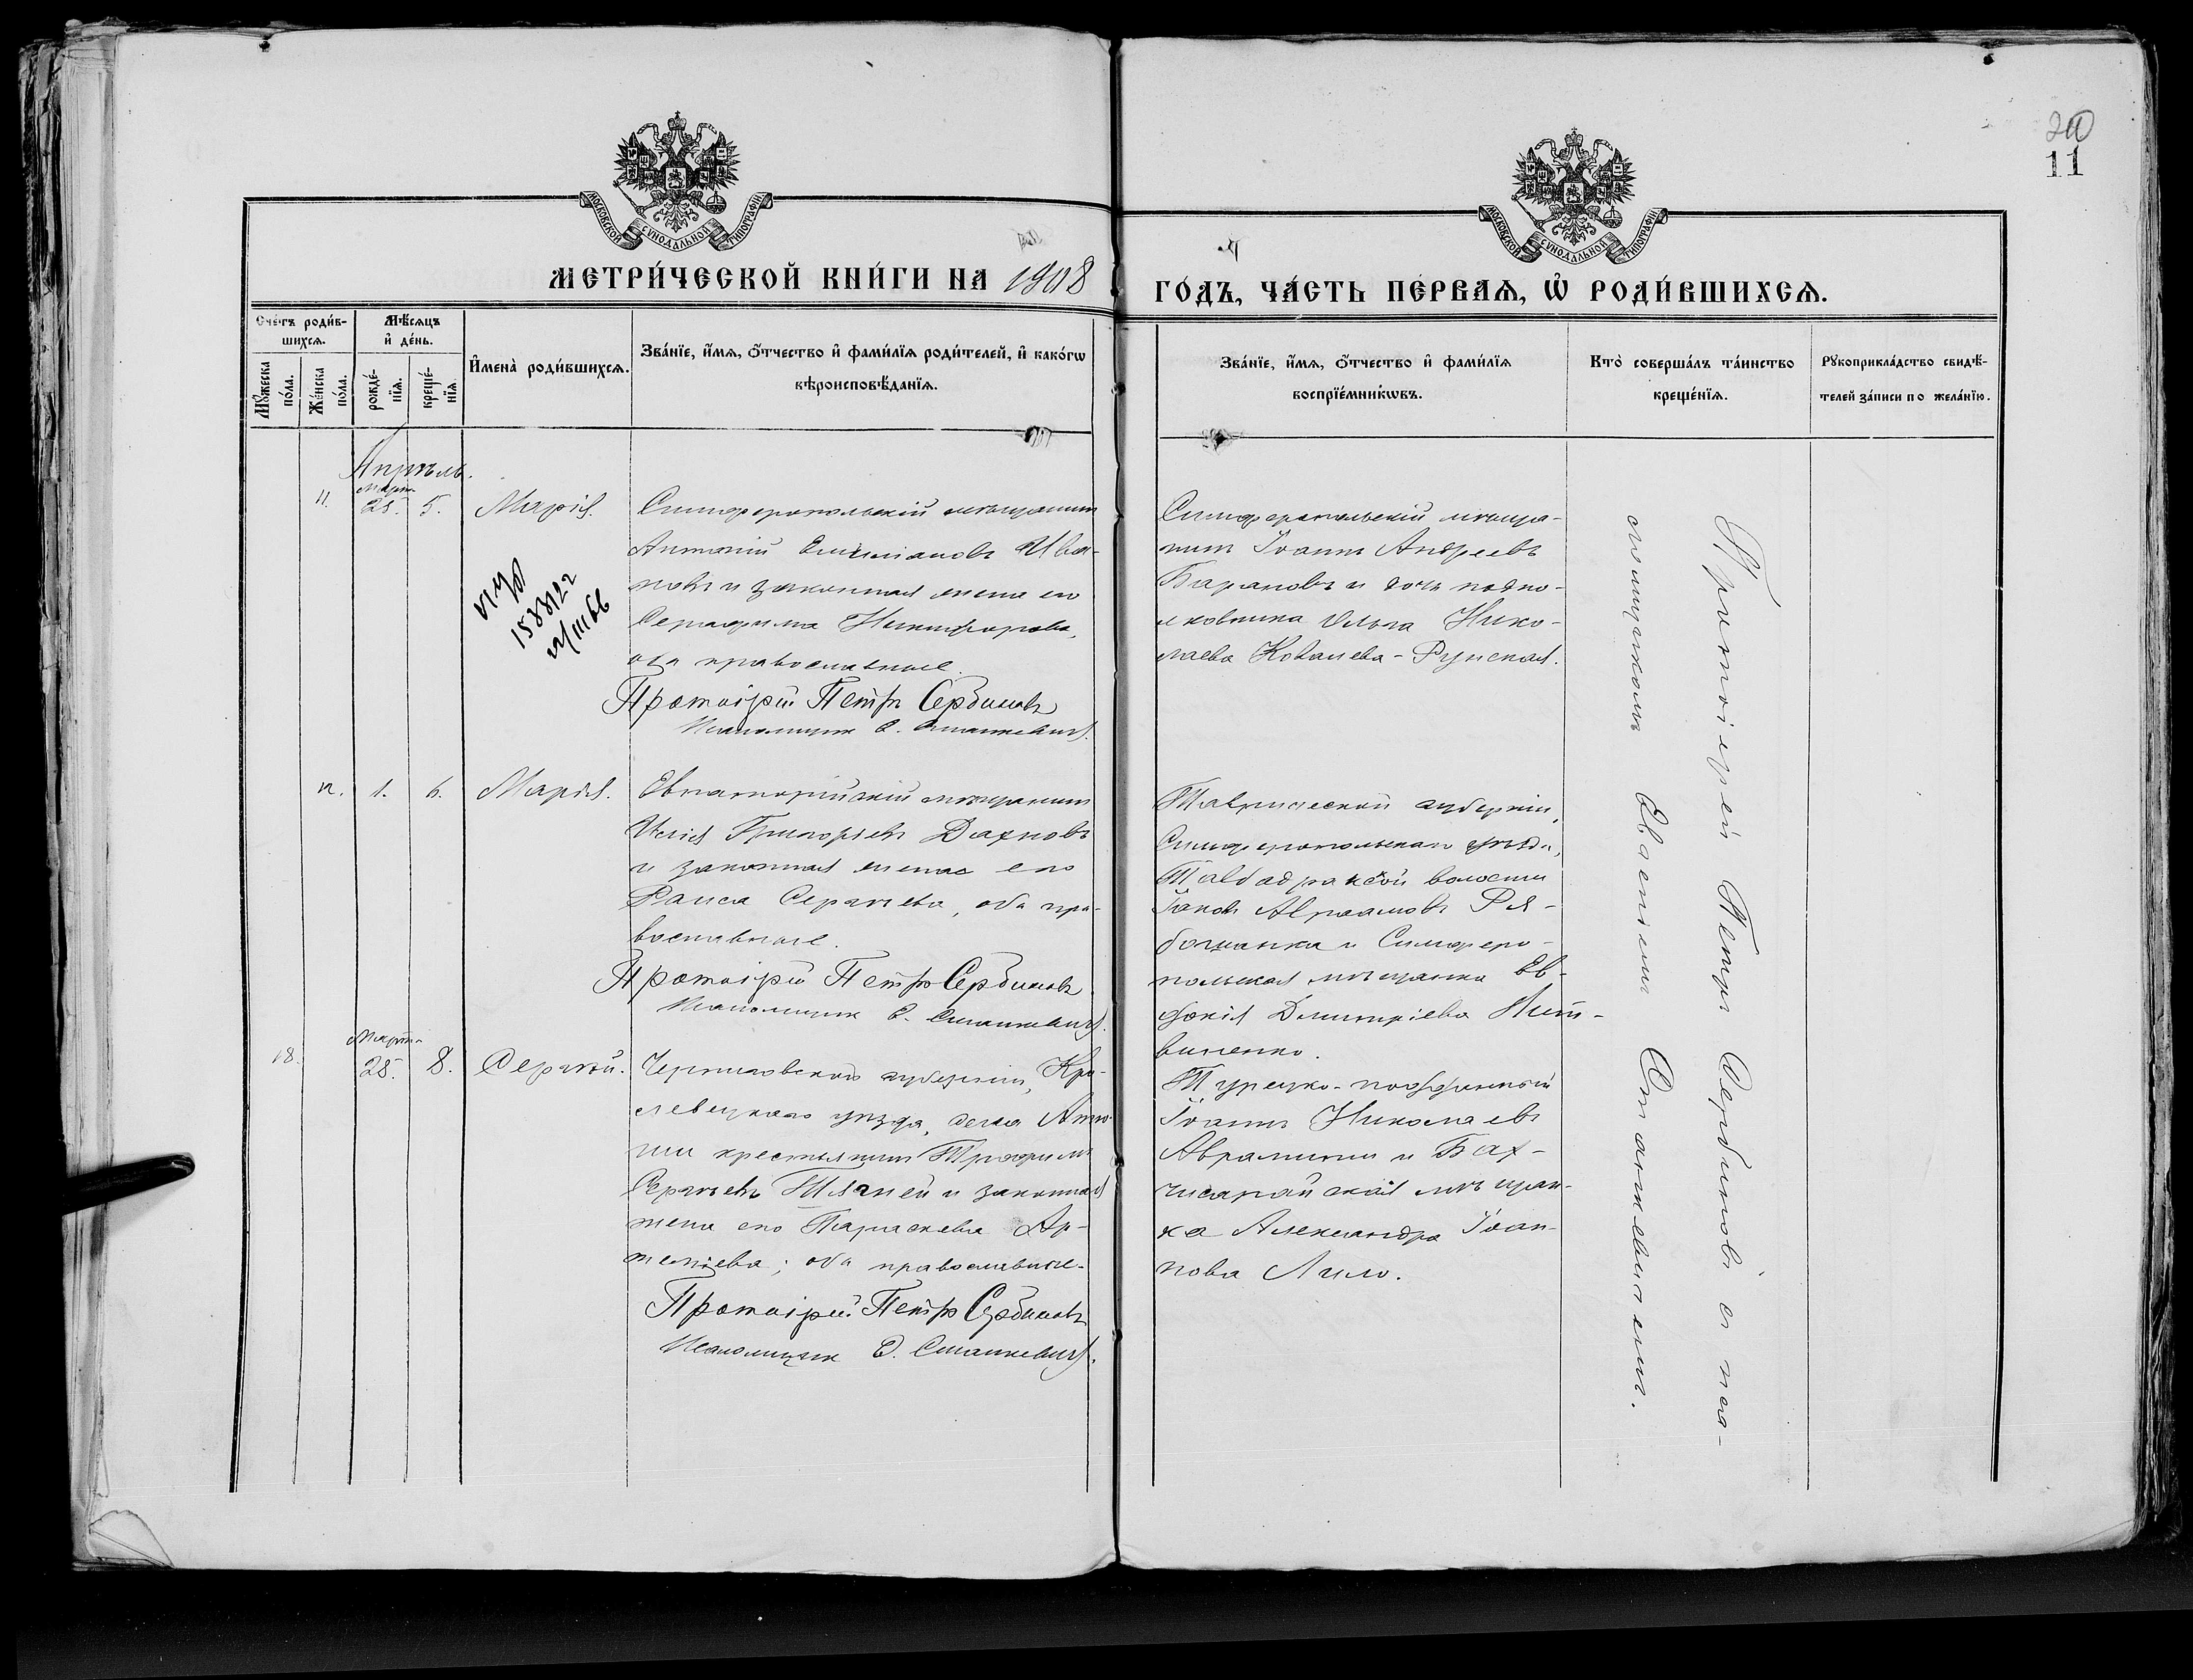 11
МОСКОВСКОЙ СѴНОДАЛЬНОЙ ТИПОГРАФІИ
МОСКОВСКОЙ СѴНОДАЛЬНОЙ ТИПОГРАФІИ
МЕТРИ́ЧЕСКОЙ КНИ́ГИ НА 1908
ГО́ДЪ, ЧА́СТЬ ПЕ́РВАѦ, Ѡ҆ РОДИ́ВШИХСѦ.
Сче́тъ роди́в-
шихсѧ.
Мꙋ́жеска
по́ла.
Же́нска
по́ла.
Мѣ́сѧцъ
и҆ де́нь.
рожде́-
нїѧ.
креще́-
нїѧ.
И҆мена̀ роди́вшихсѧ.
Зва́нїе, и҆́мѧ, ѻ҆́тчество и҆ фами́лїѧ роди́телей, и҆ како́гѡ
вѣроисповѣ́данїѧ.
Зва́нїе, и҆́мѧ, ѻ҆́тчество и҆ фами́лїѧ
воспрїе́мникѡвъ.
Кто̀ соверша́лъ та́инство
креще́нїѧ.
Рꙋкоприкла́дство свидѣ́-
телей за́писи по жела́нїю.
Апрѣль.
11.
Марта
28. 5.
Марія.
Симферопольскій мѣщанинъ
Антоній Емиліановъ Ива-
новъ и законная жена его
Серафима Никифорова,
оба православные.
Протоіерей Петръ Сербиновъ
Псаломщикъ Е. Станкевичъ.
Симферопольскій мѣща-
нинъ Іоаннъ Андреевъ
Барановъ и дочь подпо-
лковника Ольга Нико-
лаева Ковалева-Рунская.
158812
12. 1. 6.
Марія.
Евпаторійскій мѣщанинъ
Илія Григорьевъ Дахновъ
и законная жена его
Раиса Сергѣева, оба пра-
вославные.
Протоіерей Петръ Сербиновъ
Псаломщикъ Е. Станкевичъ.
Таврической губерніи,
Симферопольскаго уѣзда,
Тавбадракской волости
Іаковъ Авраамовъ Ря-
бошапка и Симферо-
польская мѣщанка Ев-
докія Димитріева Лит-
виненко.
18.
Марта
28. 8.
Сергѣй.
Черниговской губерніи, Кро-
левецкаго уѣзда, села
крестьянинъ Трофимъ
Сергѣевъ и законная
жена его Параскева Ар-
темьева; оба православные.
Протоіерей Петръ Сербиновъ
Псаломщикъ Е. Станкевичъ.
Турецко-подданный
Іоаннъ Николаевъ
и Бах-
чисарайская мѣщан-
ка Александра Іоан-
нова
Протоіерей Петръ Сербиновъ съ пса-
ломщикомъ Евгеніемъ Станкевичемъ.